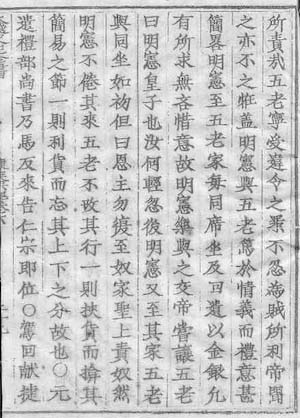 所責哉五老寧受違令之罪不忍為賊所利帝聞
之亦不之罪盖明憲與五老篤於情義而禮意甚
簡畧明憲至五老家每同席坐及回遺以金銀凡
有所求無吝惜意故明憲樂與之交帝嘗讓五老
曰明憲皇子也汝何輕忽後明憲又至其家五老
與同坐如初但曰恩主勿復至奴家聖上責奴然
明憲不倦其來五老不改其行一則挾貨而揜其
簡易之節一則利貨而忘其上下之分故也○元
遣禮部尚書乃馬歹來告仁宗即位○駕回献捷